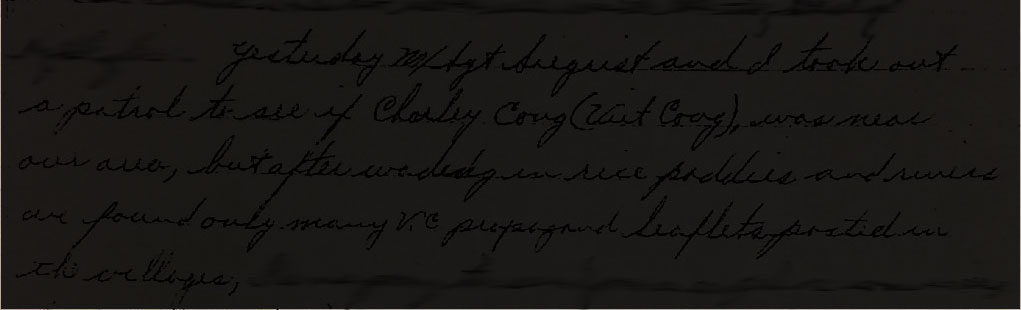 Yesterday M/Sgt Siegrist and I took out
a patrol to see if Charley Cong (Viet Cong), was near
our area, but after wadeing in rice paddies and rivers
we found only many V.C propogand leaflets posted in
the villages,